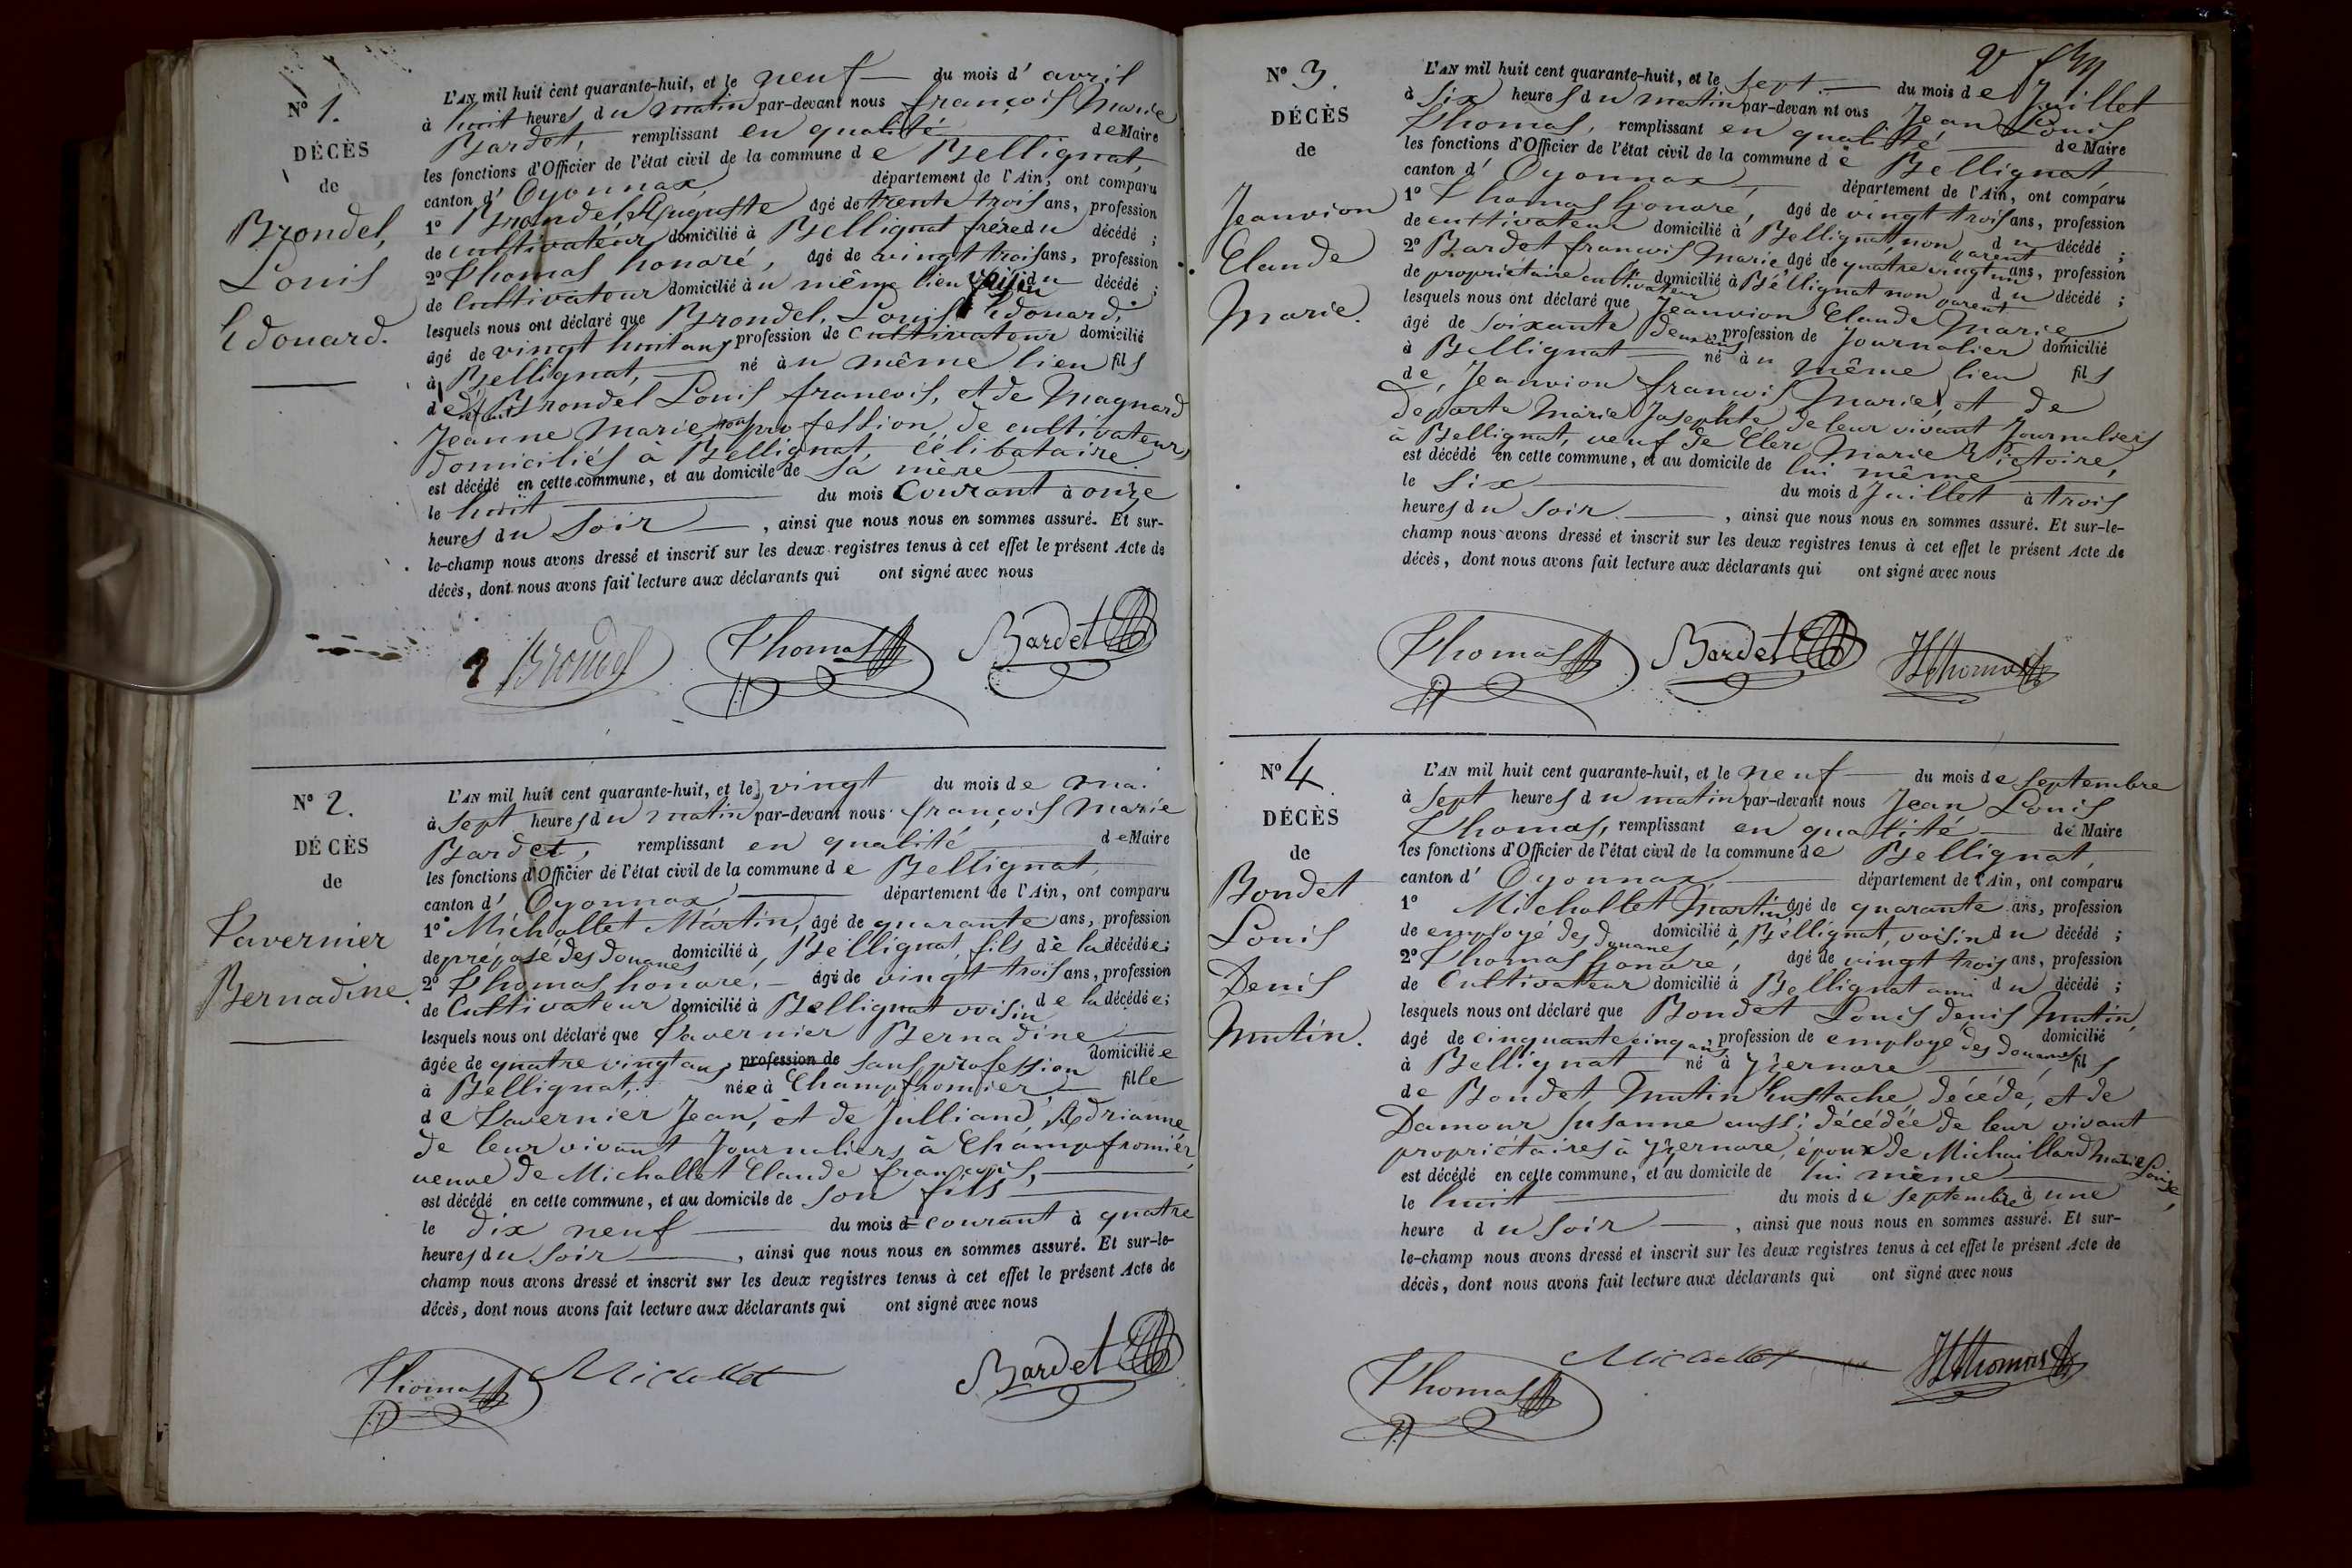 N° 1.
DÉCÈS
de
Brondel,
Louis
Edouard.
L'AN mil huit cent quarante-huit, et le neuf du mois d'avril
à huit heures du matin par-devant nous françois Marie
Bardet, remplissant en qualité de Maire
les fonctions d'Officier de l'état civil de la commune de Bellignat,
canton d'Oyonnax, département de l'Ain, ont comparu
1° Brondel Auguste âgé de trente trois ans, profession
de cultivateur domicilié à Bellignat frère du décédé ;
2° Thomas honoré, âgé de vingt trois ans, profession
de Cultivateur domicilié au même lieu voisin du décédé ;
lesquels nous ont déclaré que Brondel, Louis Edouard,
âgé de vingt huit ans profession de Cultivateur domicilié
à Bellignat, né au même lieu fils
de Brondel Louis françois, et de Magnard
Jeanne Marie profession de cultivateurs
domiciliés à Bellignat, célibataire
est décédé en cette commune, et au domicile de sa mère
le huit du mois Courant à onze
heures du soir, ainsi que nous nous en sommes assuré. Et sur-
le-champ nous avons dressé et inscrit sur les deux registres tenus à cet effet le présent Acte de
décès, dont nous avons fait lecture aux déclarants qui ont signé avec nous
Brondel Thomas Bardet
N° 2.
DÉCÈS
de
Tavernier
Bernadine.
L'AN mil huit cent quarante-huit, et le vingt du mois de mai
à sept heures du matin par-devant nous françois Marie
Bardet, remplissant en qualité de Maire
les fonctions d'Officier de l'état civil de la commune de Bellignat,
canton d'Oyonnax département de l'Ain, ont comparu
1° Michallet Martin, âgé de quarante ans, profession
de préposé des Douanes domicilié à Bellignat, fils de la décédée ;
2° Thomas honoré, âgé de vingt trois ans, profession
de Cultivateur domicilié à Bellignat voisin de la décédée ;
lesquels nous ont déclaré que Tavernier Bernadine
âgée de quatre vingt ans, profession de sans profession domiciliée
à Bellignat, née à Champfromier fille
de Tavernier Jean, et de Julliand, Adrianne
de leur vivant Journaliers à Champfromier,
veuve de Michallet Claude françois,
est décédé en cette commune, et au domicile de son fils,
le dix neuf du mois d courant à quatre
heures du soir, ainsi que nous nous en sommes assuré. Et sur-le-
champ nous avons dressé et inscrit sur les deux registres tenus à cet effet le présent Acte de
décès, dont nous avons fait lecture aux déclarants qui ont signé avec nous
Thomas Michallet Bardet
N° 3.
DÉCÈS
de
Jeanvion
Claude
Marie.
L'AN mil huit cent quarante-huit, et le sept du mois de Juillet
à six heures du matin par-devan nt ous Jean Louis
Thomas, remplissant en qualité de Maire
les fonctions d'Officier de l'état civil de la commune de Bellignat
canton d'Oyonnax, département de l'Ain, ont comparu
1° Thomas honoré, âgé de vingt trois ans, profession
de cultivateur domicilié à Bellignat, non parent du décédé ;
2° Bardet françois Marie âgé de quatre vingt un ans, profession
de propriétaire cultivateur domicilié à Bellignat non parent du décédé ;
lesquels nous ont déclaré que Jeanvion Claude Marie
âgé de soixante deux ans profession de Journalier domicilié
à Bellignat né au même lieu fils
de, Jeanvion françois Marie, et de
Deporte Marie Josephte de leur vivant Journaliers
à Bellignat, veuf de Clerc Marie Victoire,
est décédé en cette commune, et au domicile de lui même
le six du mois d Juillet à trois
heures du soir, ainsi que nous nous en sommes assuré. Et sur-le-
champ nous avons dressé et inscrit sur les deux registres tenus à cet effet le présent Acte de
décès, dont nous avons fait lecture aux déclarants qui ont signé avec nous
Thomas Bardet Hthomas
N° 4.
DÉCÈS
de
Bondet
Louis
Denis
Mutin.
L'AN mil huit cent quarante-huit, et le neuf du mois de septembre
à sept heures du matin par-devant nous Jean Louis
Thomas, remplissant en qualité de Maire
les fonctions d'Officier de l'état civil de la commune de Bellignat,
canton d'Oyonnax, département de l'Ain, ont comparu
1° Michallet Martin, âgé de quarante ans, profession
de employé des douanes domicilié à Bellignat, voisin du décédé ;
2° Thomas honoré, âgé de vingt trois ans, profession
de Cultivateur domicilié à Bellignat ami du décédé ;
lesquels nous ont déclaré que Bondet Louis denis Mutin,
âgé de cinquante cinq ans, profession de employé des Douanes domicilié
à Bellignat né à Yzernore, fils
de Bondet Mutin Eustache, décédé, et de
Damour Susanne aussi décédée de leur vivant
propriétaires à Yzernore, époux de Michaillard Marie Louise,
est décédé en cette commune, et au domicile de lui même
le huit du mois de septembre à une
heure du soir, ainsi que nous nous en sommes assuré. Et sur-
le-champ nous avons dressé et inscrit sur les deux registres tenus à cet effet le présent Acte de
décès, dont nous avons fait lecture aux déclarants qui ont signé avec nous
Thomas Michallet Hthomas